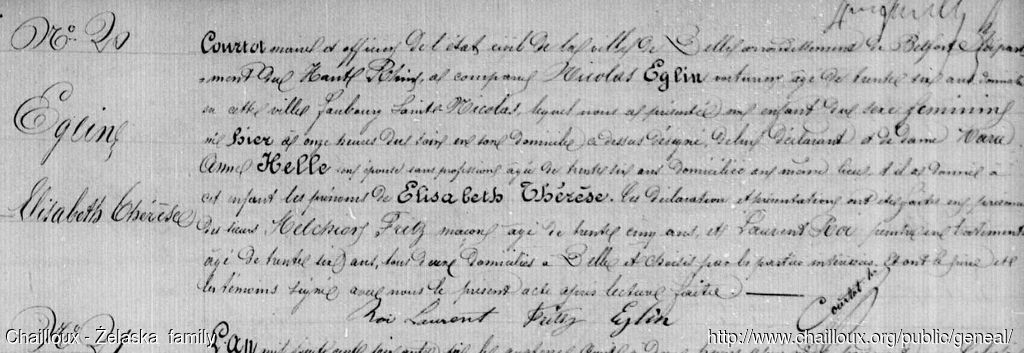 No 20
Eglin
Elisabeth Thérèse
Courtot maire et officier de l'état civil de la ville de Delle arrondissement de Belfort départe
ment du Haut Rhin, a comparu Nicolas Eglin voiturier âgé de trente six ans domicilié
en cette ville faubourg Saint Nicolas, lequel nous a présenté un enfant du sexe féminin
né hier à onze heures du soir en son domicile ci dessus désigné, de lui déclarant et de dame Marie
Anne Helle son épouse sans profession âgée de trente six ans domiciliée au même lieu, et il a donné à
cet enfant les prénoms de Elisabeth Thérèse. Les déclaration et présentation ont été faites en présence
des sieurs Melchior Fritz maçon âgé de trente cinq ans, et Laurent Roi peintre en bâtiment
âgé de trente six ans, tous deux domiciliés à Delle et choisis par les parties intéressées. Et ont le père et
les témoins signé avec nous le présent acte après lecture faite
Roi Laurent Fritz Eglin Courtot
No 21
L'an mil huit cent soixante six
Chailloux - Żelaska family
http://www.chailloux.org/public/geneal/